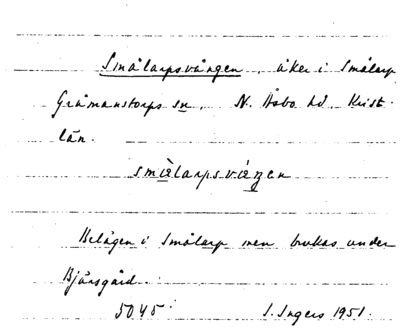 Smålarpsvången, åker i Smålarp
Gråmanstorps sn, N. Åsbo hd, Krist.
län.
smàlarpsváŋen
Belägen i Smålarp men brukas under
Bjärsgård.
5045 I. Ingers 1951.